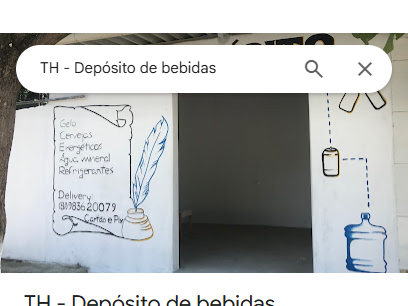 TH - Depósito de bebidas
Gelo
Cervejas
Energéticos
Água mineral
Refrigerantes
Delivery:
(81)983620079
Cartão e Pix
TH - Depósito de bebidas